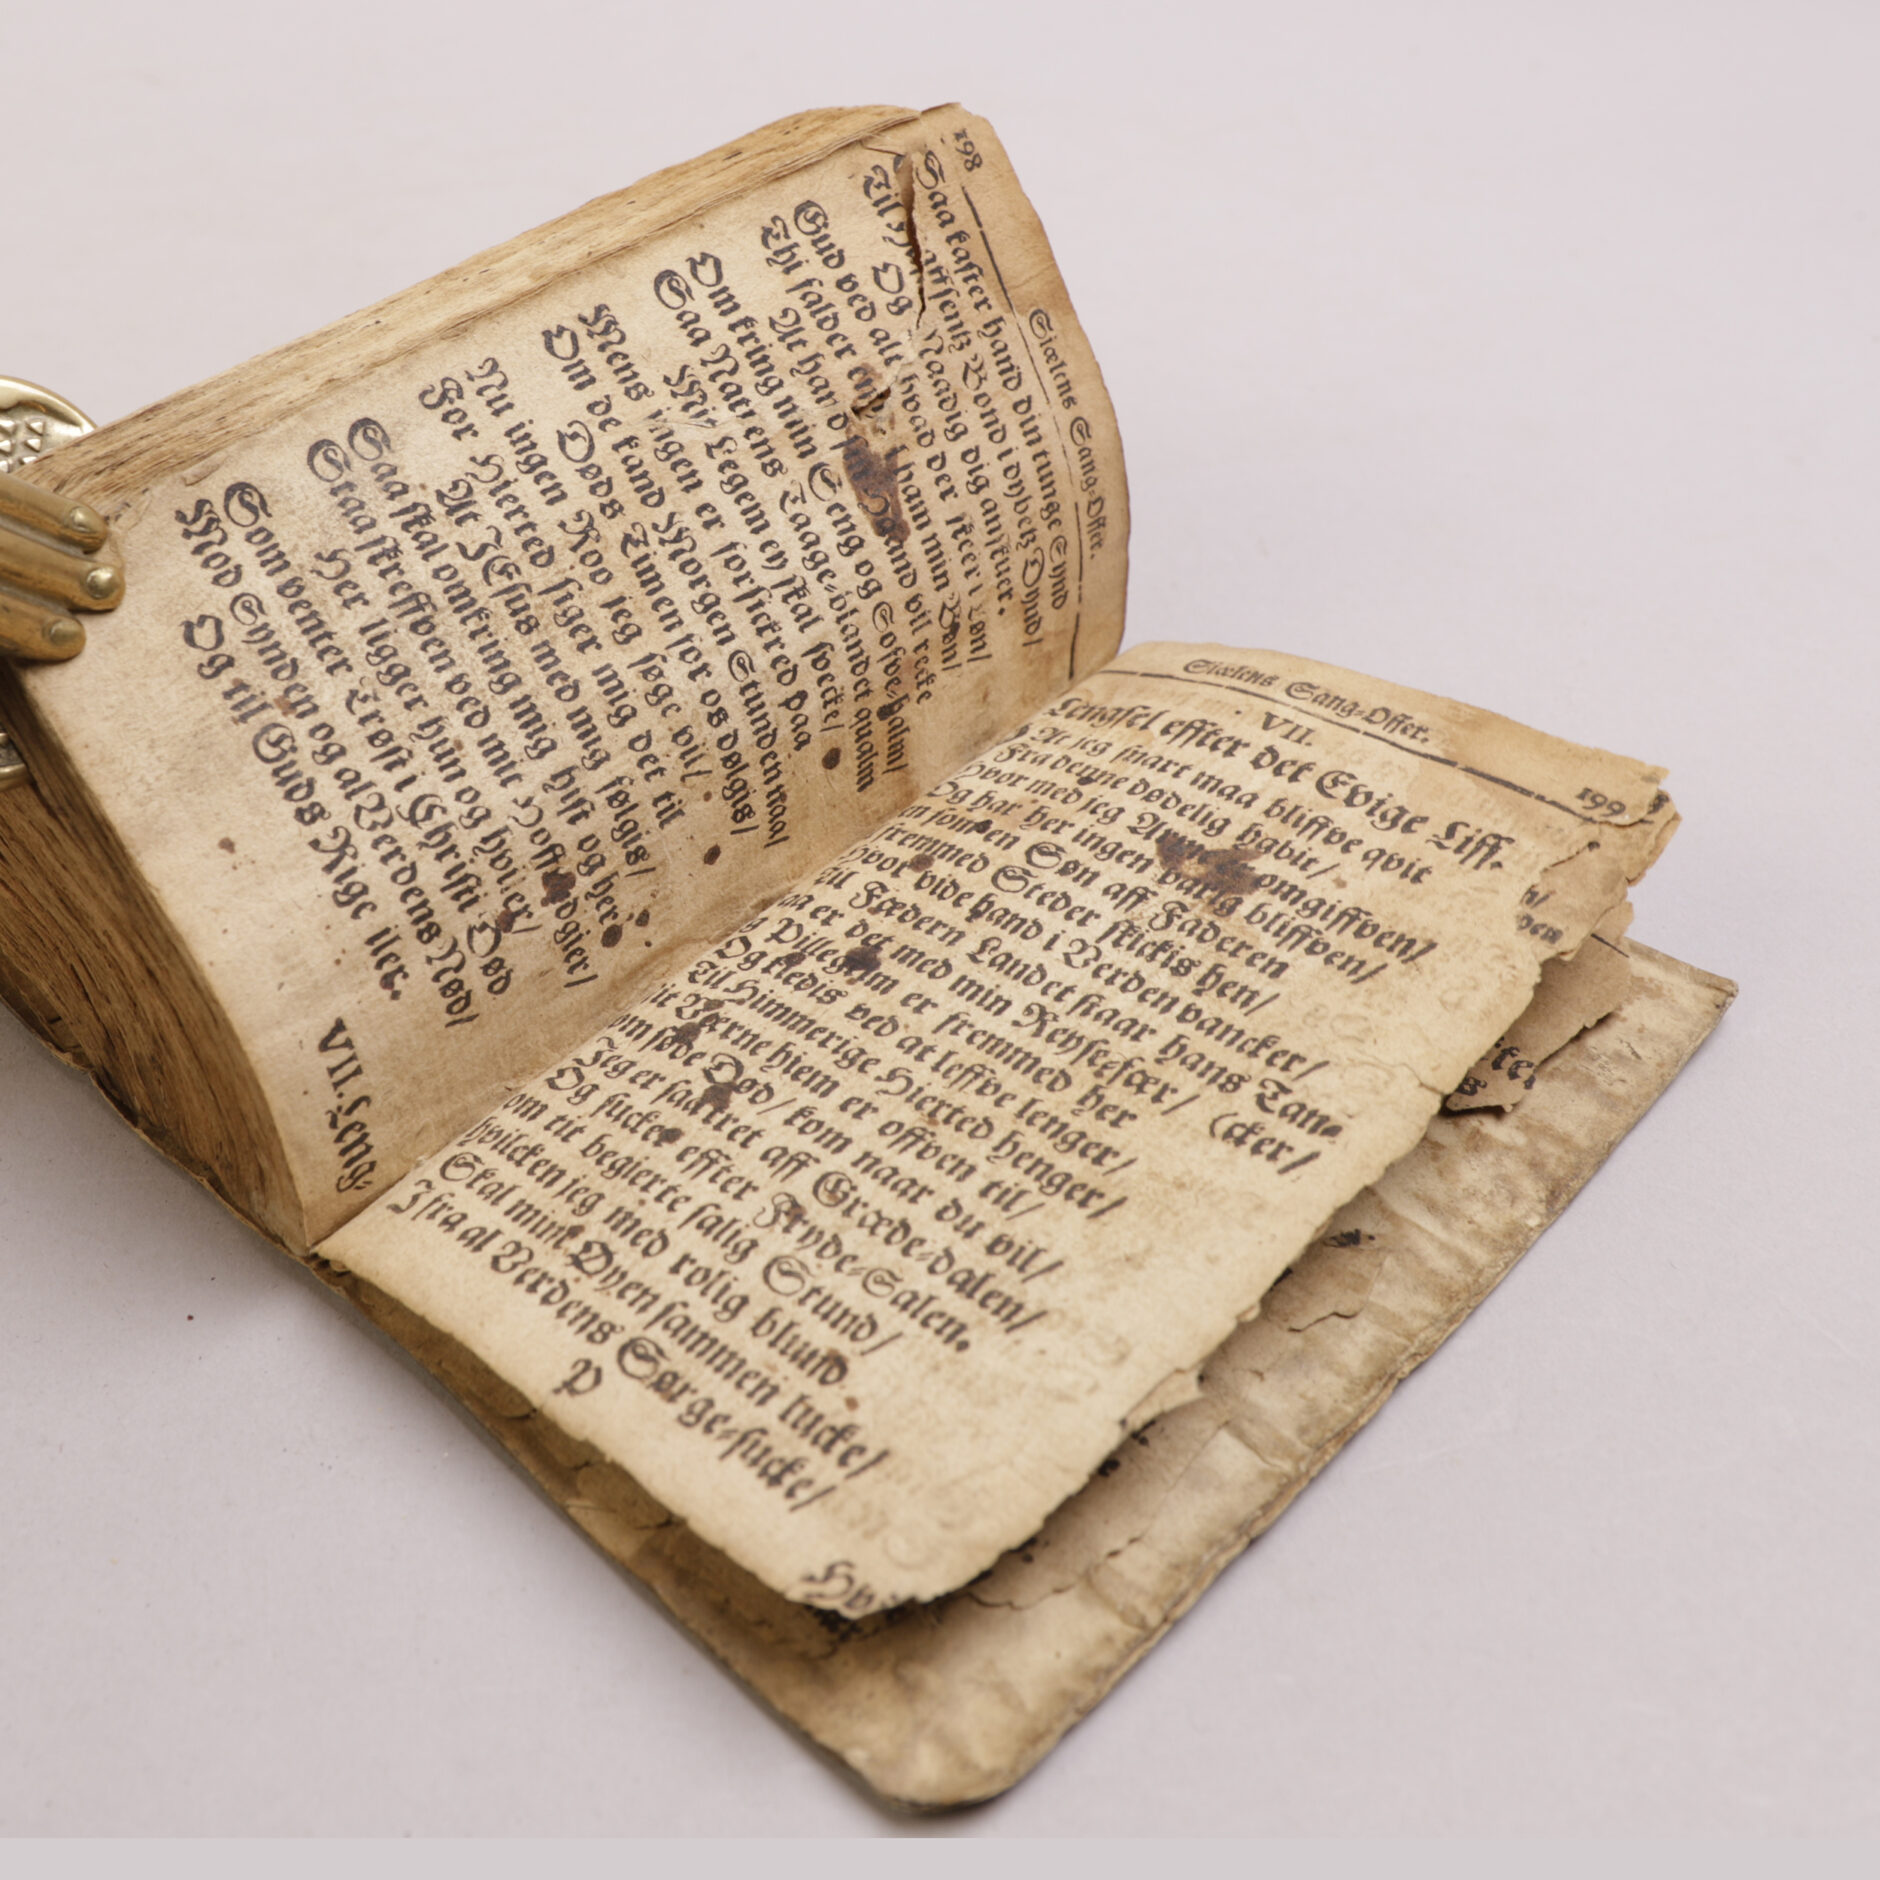 198
Siælens Sang-Offer.
Saa kaster hand din tunge Synd
Til Haffsens Bond i dybets Dynd/
Og Naadig dig anskuer.
Gud ved alt hvad der skeer i Løn/
Thi falder ham min Bøn/
At hand sin Haand vil recke
Omkring min Seng og Sofve-halm/
Saa Nattens Taage-blandet qualm
Mit Legem ey skal svecke/
Mens ingen er forsickred paa
Om de kand Morgen Stunden naa/
Døds Timen for os dølgis/
Nu ingen Roo jeg søge vil/
For Hierted siger mig det til
At JEsus med mig følgis/
Saa skal omkring mig hist og her
Staa skreffven ved mit Hofft
Her ligger hun og hviler/
Som venter Trøst i Christi Død
Mod Synden og al Verdens Nød/
Og til Guds Rige iler.
VII. Leng-
Siælens Sang-Offer.
199
VII.
Lengsel effter det Evige Liff.
At jeg snart maa bliffve qvit
Fra denne dødelig habit/
Hvor med jeg omgiffven/
Og har her ingen varig bliffven/
som en Søn aff Faderen
fremmed Steder skickis hen/
Hvor vide hand i Verden vancker/
Til Fædern Landet staar hans Tan-
er det med min Reyse-fær/ (cker/
Pillegrim er fremmed her
Og kledis ved at leffve lenger/
Til Himmerige Hierted henger/
Verne hiem er offven til/
søde Død/ kom naar du vil/
Jeg er saa træt aff Græde-dalen/
Og sucker effter Fryde-Salen.
om tit begierte salig Stund/
hvilcken jeg med rolig blund
Skal mine Øyen sammen lucke/
Ifra al Verdens Sørge-sucke/
P